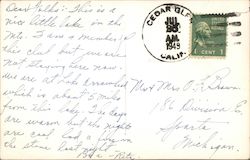 Dear Folks: This is a
nice little lake in the
Mts. I am a member of
this club but we are
not staying here now.
we are at Lake Arrowhead
which is about 5 miles
from this lake. The days
are warm but the nights
are cool. Had a fire in
the stove last night.
CEDAR GLEN
JUL
AM
1949
CALIF.
1 CENT 1
Mr & Mrs P.L. Brown
186 Division E.
Sparta
Michigan.